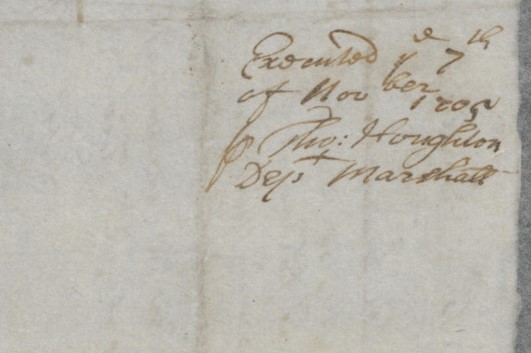 Executed yᵉ 7ᵗʰ
of Novᵇᵉʳ 1705
ꝑ Tho: Houghton
Depᵗ Marshall